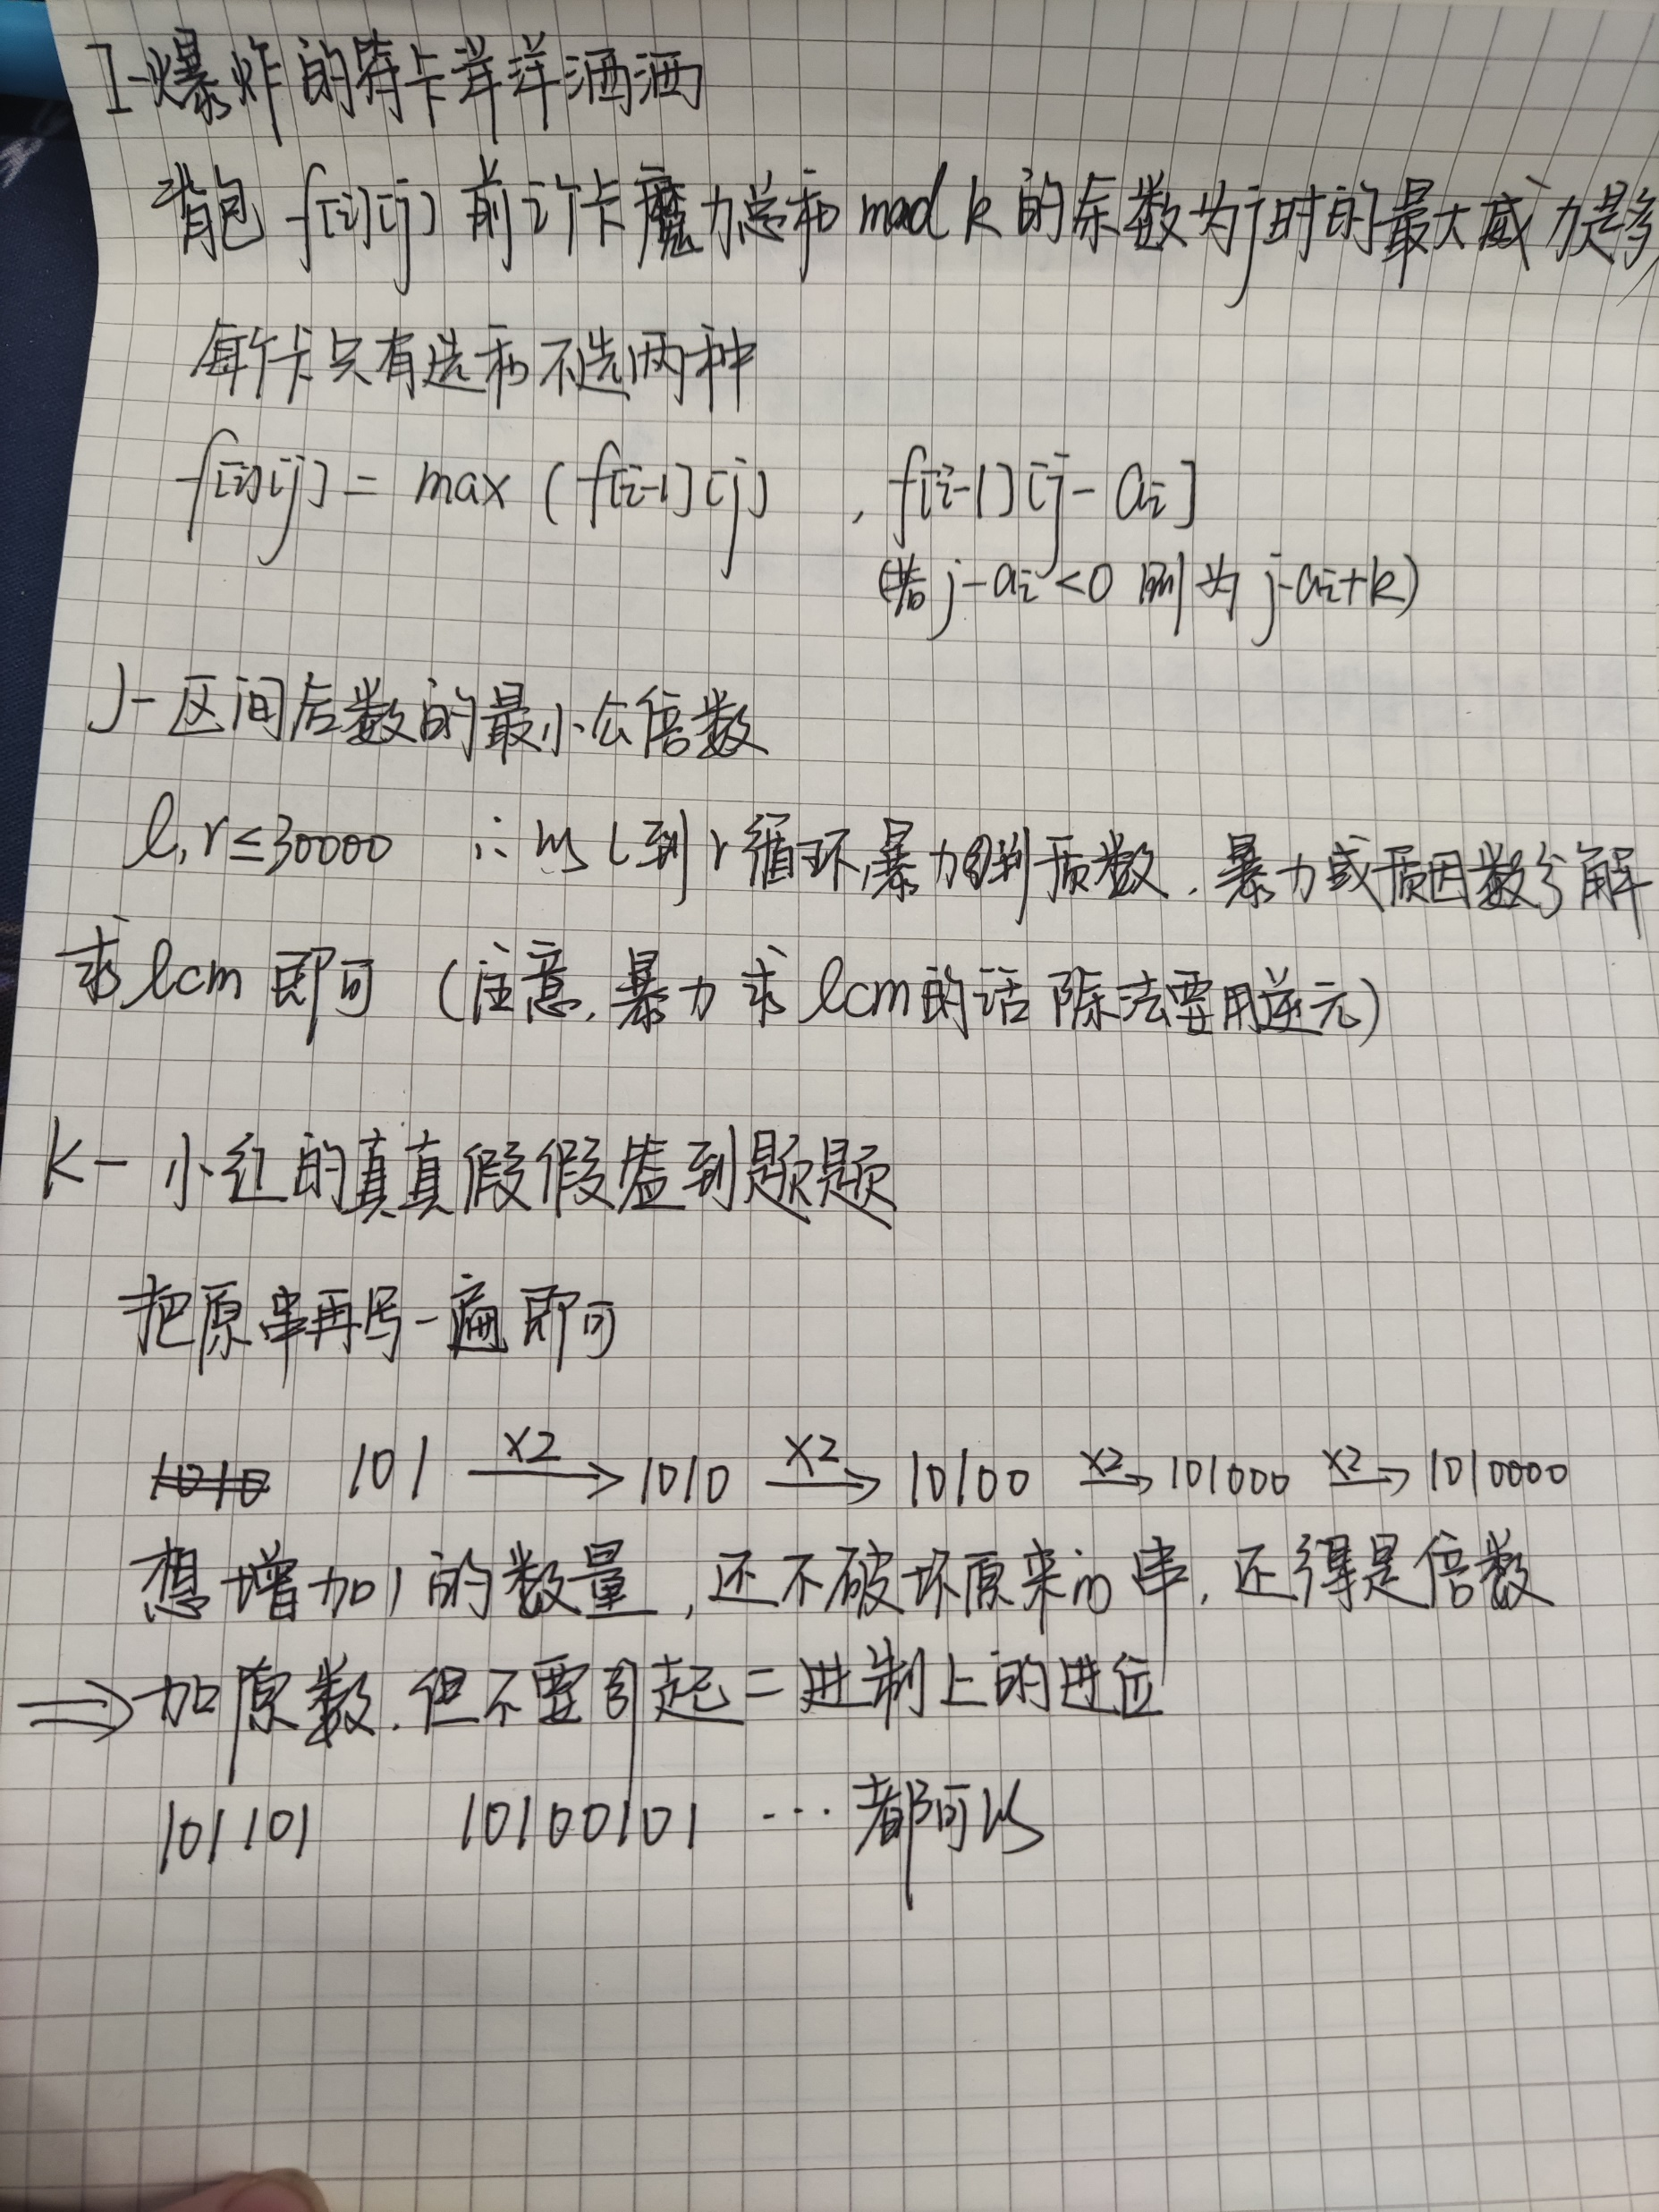 I-爆炸的符卡洋洋洒洒
背包 f[i][j] 前i个卡魔力总和 mod k 的余数为j时的最大威力是多
每个卡只有选和不选两种
f[i][j] = max (f[i-1][j] , f[i-1][j-ai]
(若 j-ai<0 则为 j-ai+k)
J-区间后数的最小公倍数
l,r≤30000 ∴ 从l到r循环,暴力判质数,暴力或质因数分解
求lcm 即可 (注意,暴力求lcm的话 除法要用逆元)
K-小红的真真假假签到题题
把原串再写一遍即可
101 ×2→ 1010 ×2→ 10100 ×2→ 101000 ×2→ 1010000
想增加1的数量,还不破坏原来的串,还得是倍数
⇒加原数,但不要引起二进制上的进位
101101 10100101 ... 都可以